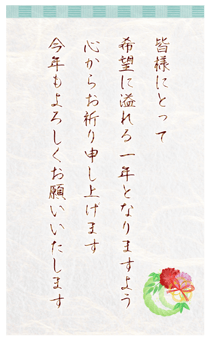 皆様にとって
希望に溢れる一年となりますよう
心からお祈り申し上げます
今年もよろしくお願いいたします